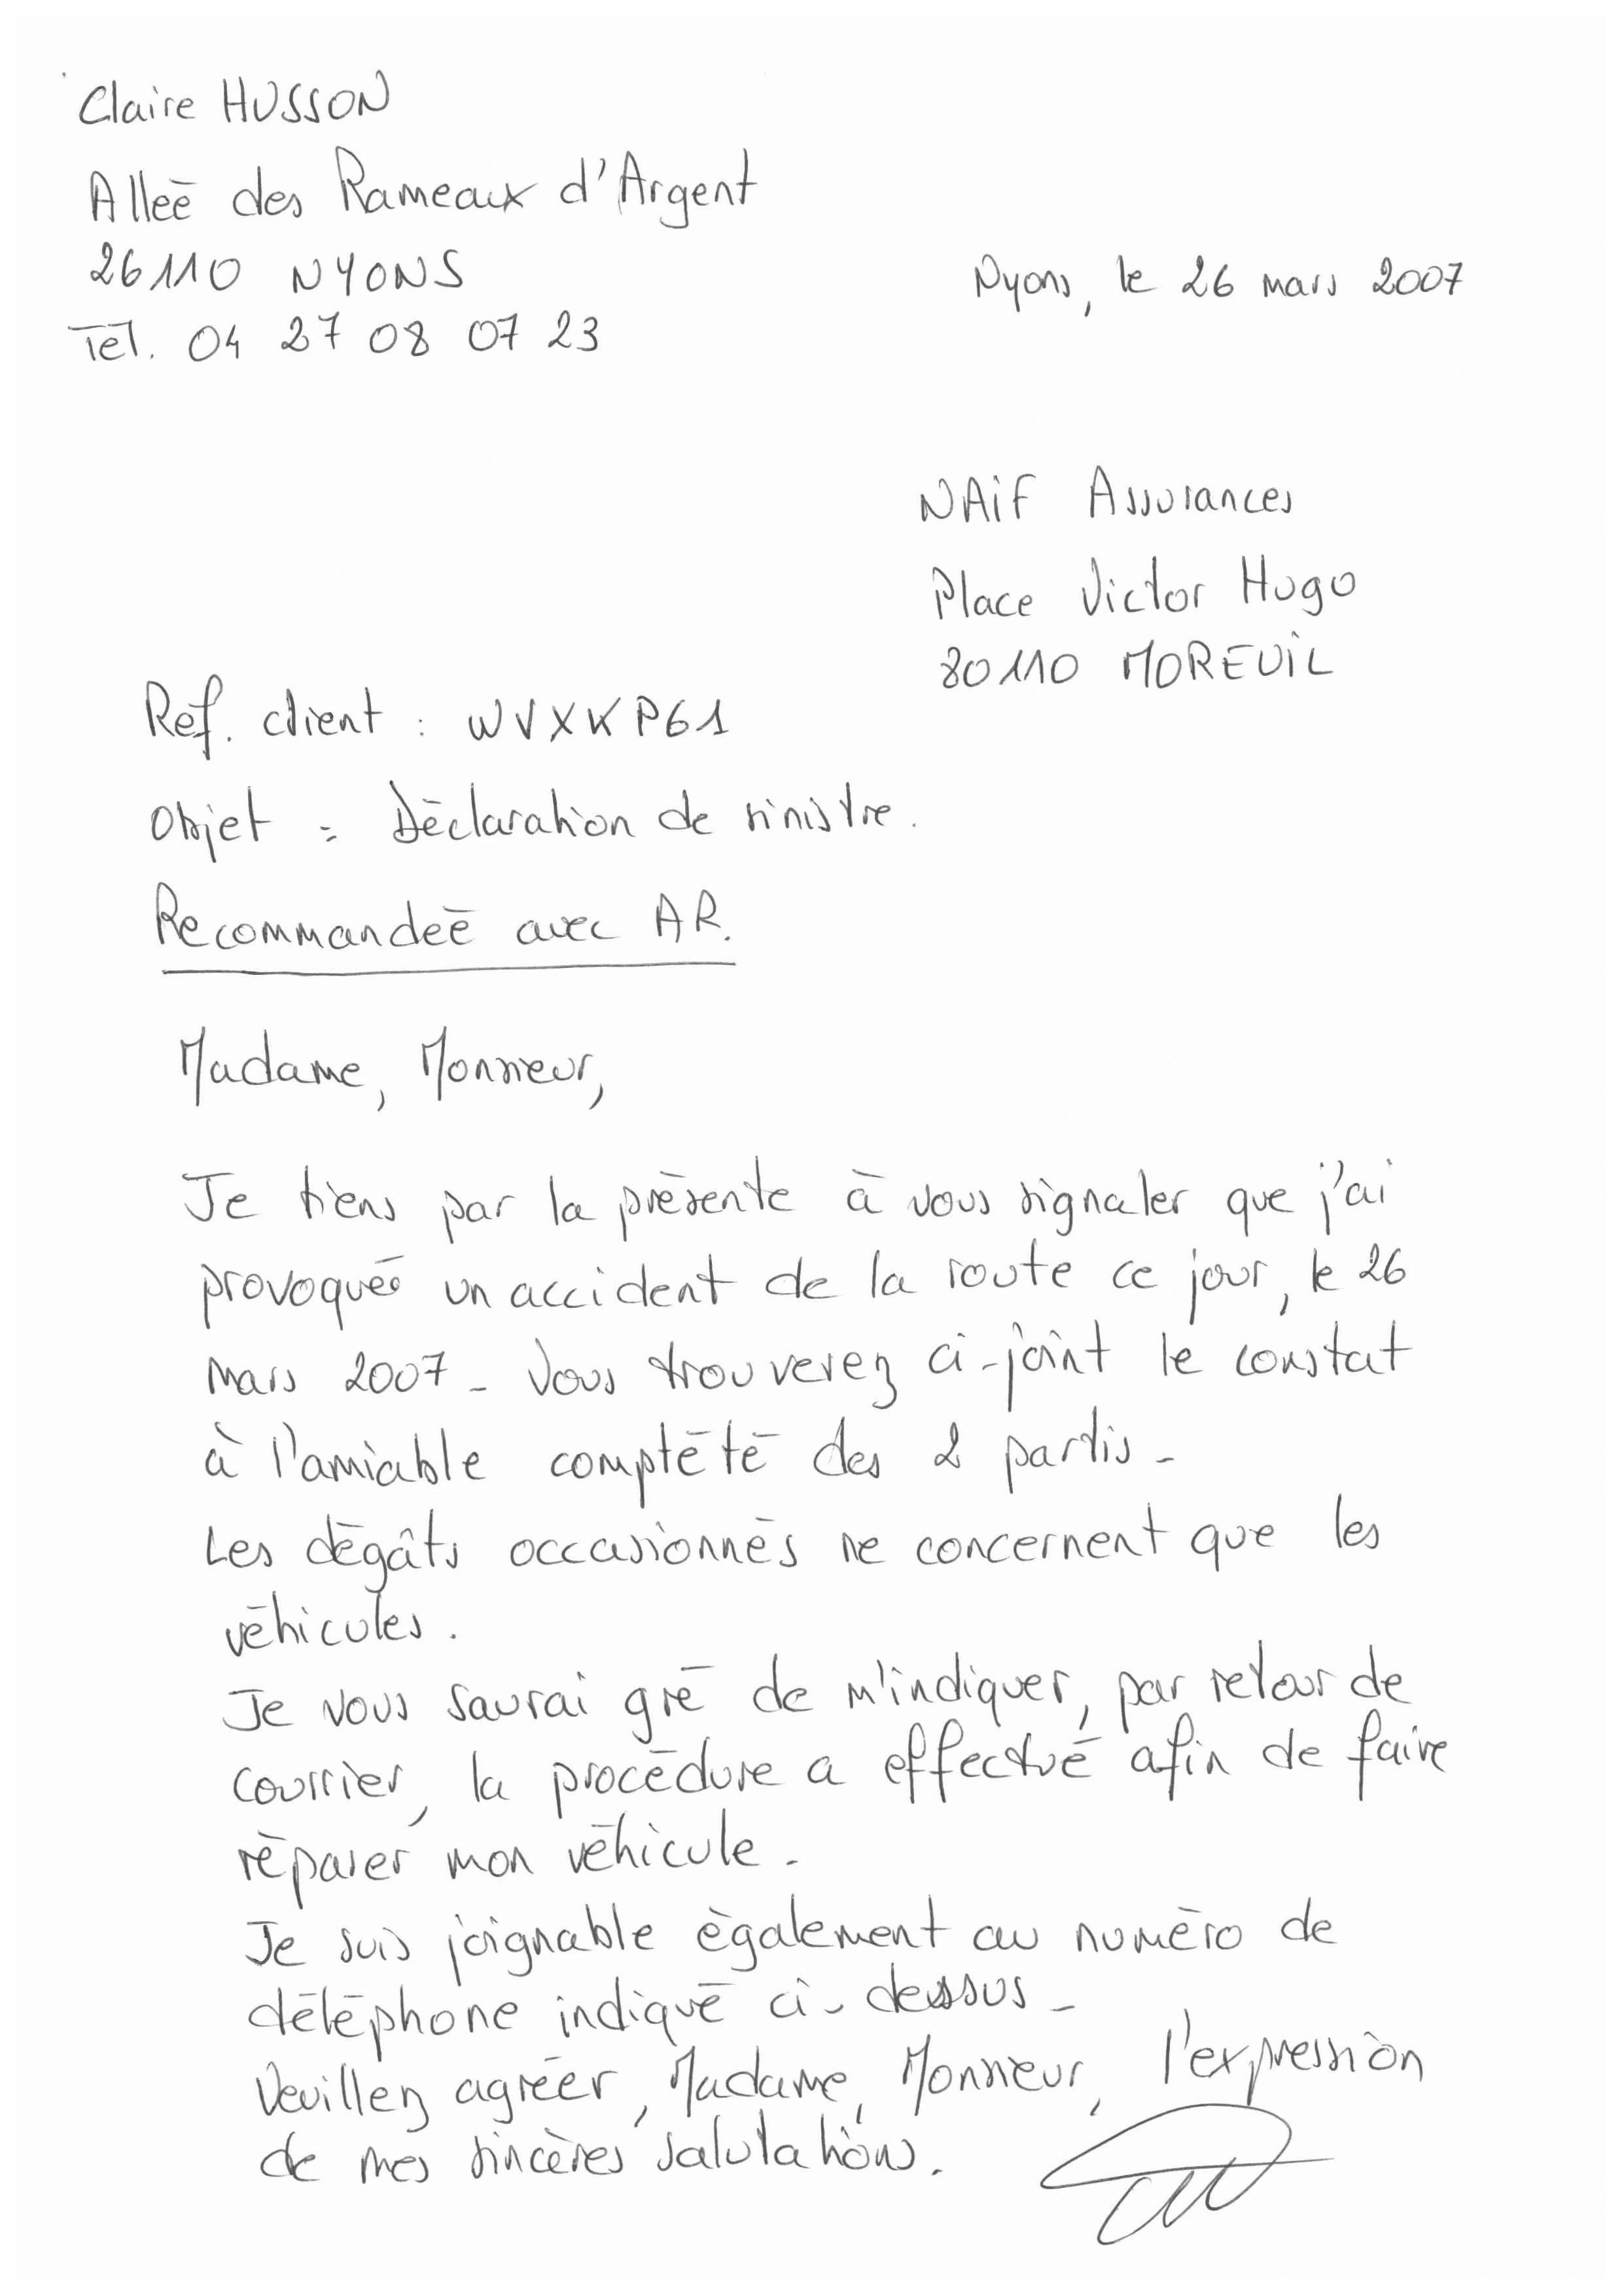 Claire HUSSON
Allée des Rameaux d'Argent
26110 NYONS
Tél. 04 27 08 07 23
Nyons, le 26 mars 2007
NAiF Assurances
Place Victor Hugo
80110 MOREUiL
Ref. client : WVXKP61
Objet : Déclaration de sinistre.
Recommandée avec AR.
Madame, Monsieur,
Je tiens par la présente à vous signaler que j'ai
provoquée un accident de la route ce jour, le 26
Mars 2007 - Vous trouverez ci-joint le constat
à l'amiable complété des 2 partis -
Les dégâts occasionnés ne concernent que les
véhicules.
Je vous saurai gré de m'indiquer, par retour de
courrier, la procédure a effectué afin de faire
réparer mon véhicule -
Je suis joignable également au numéro de
téléphone indiqué ci-dessus -
Veuillez agréer, Madame, Monsieur, l'expression
de mes sincères salutations.